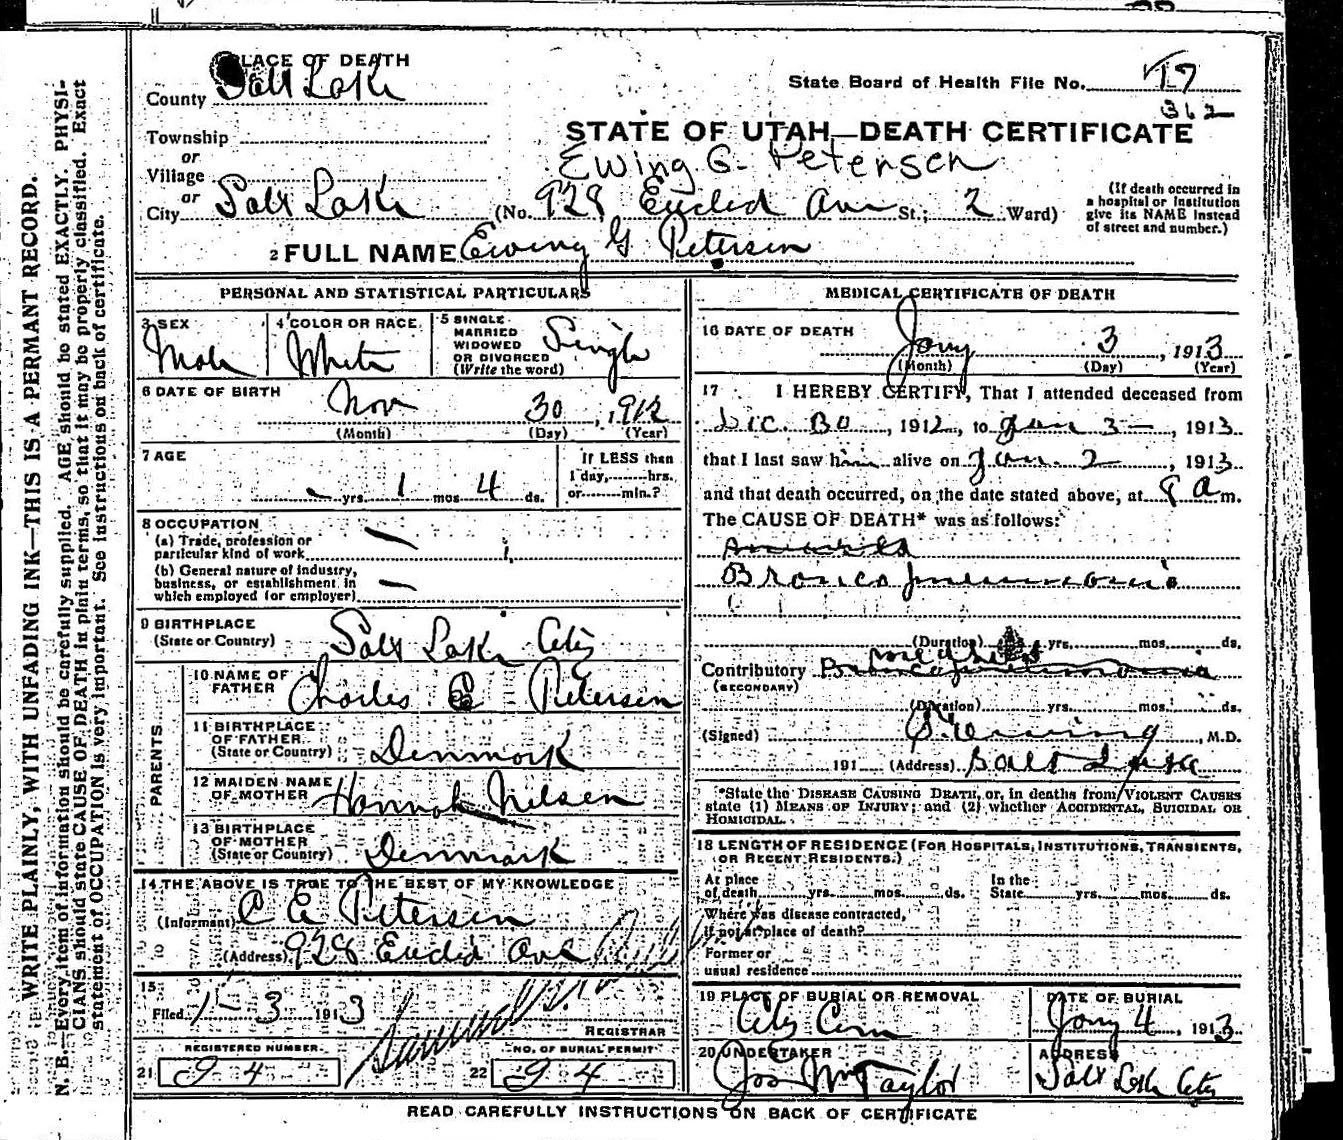 PLACE OF DEATH
County Salt Lake
State Board of Health File No. 17
362
Township
or
Village
or
City Salt Lake
STATE OF UTAH—DEATH CERTIFICATE
Ewing G. Petersen
(No. 928 Euclid Ave St.; 2 Ward)
(If death occurred in
a hospital or institution
give its NAME instead
of street and number.)
2 FULL NAME Ewing G Petersen
PERSONAL AND STATISTICAL PARTICULARS
3 SEX
Male
4 COLOR OR RACE
White
5 SINGLE
MARRIED
WIDOWED
OR DIVORCED
(Write the word)
Single
6 DATE OF BIRTH
Nov 30, 1912
(Month) (Day) (Year)
7 AGE
— yrs. 1 mos 4 ds.
If LESS than
1 day, hrs.
or min.?
8 OCCUPATION
(a) Trade, profession or
particular kind of work —
(b) General nature of industry,
business, or establishment in
which employed (or employer) —
9 BIRTHPLACE
(State or Country) Salt Lake City
PARENTS
10 NAME OF
FATHER Charles E Petersen
11 BIRTHPLACE
OF FATHER
(State or Country) Denmark
12 MAIDEN NAME
OF MOTHER Hannah Nelsen
13 BIRTHPLACE
OF MOTHER
(State or Country) Denmark
14 THE ABOVE IS TRUE TO THE BEST OF MY KNOWLEDGE
(Informant) C E Petersen
(Address) 928 Euclid Ave
15
Filed 1-3 1913
REGISTRAR
REGISTERED NUMBER
21 94
NO. OF BURIAL PERMIT
22 94
MEDICAL CERTIFICATE OF DEATH
16 DATE OF DEATH
Jany 3, 1913
(Month) (Day) (Year)
17 I HEREBY CERTIFY, That I attended deceased from
Dec. 30, 1912, to Jan 3—, 1913
that I last saw him alive on Jan. 2, 1913
and that death occurred, on the date stated above, at 9 a m.
The CAUSE OF DEATH* was as follows:
Bronco pneumonia
(Duration) yrs. mos. ds.
Contributory
(SECONDARY)
(Duration) yrs. mos. ds.
(Signed) Ewing, M.D.
191 (Address) Salt Lake
*State the DISEASE CAUSING DEATH, or, in deaths from VIOLENT CAUSES
state (1) MEANS OF INJURY; and (2) whether ACCIDENTAL, SUICIDAL OR
HOMICIDAL.
18 LENGTH OF RESIDENCE (FOR HOSPITALS, INSTITUTIONS, TRANSIENTS,
OR RECENT RESIDENTS.)
At place
of death yrs. mos. ds.
In the
State yrs. mos. ds.
Where was disease contracted,
if not at place of death?
Former or
usual residence
19 PLACE OF BURIAL OR REMOVAL
City Cem
DATE OF BURIAL
Jany 4, 1913
20 UNDERTAKER
Jos Wm Taylor
ADDRESS
Salt Lake City
READ CAREFULLY INSTRUCTIONS ON BACK OF CERTIFICATE
WRITE PLAINLY, WITH UNFADING INK—THIS IS A PERMANT RECORD.
N. B.—Every item of information should be carefully supplied. AGE should be stated EXACTLY. PHYSI-
CIANS should state CAUSE OF DEATH in plain terms, so that it may be properly classified. Exact
statement of OCCUPATION is very important. See instructions on back of certificate.